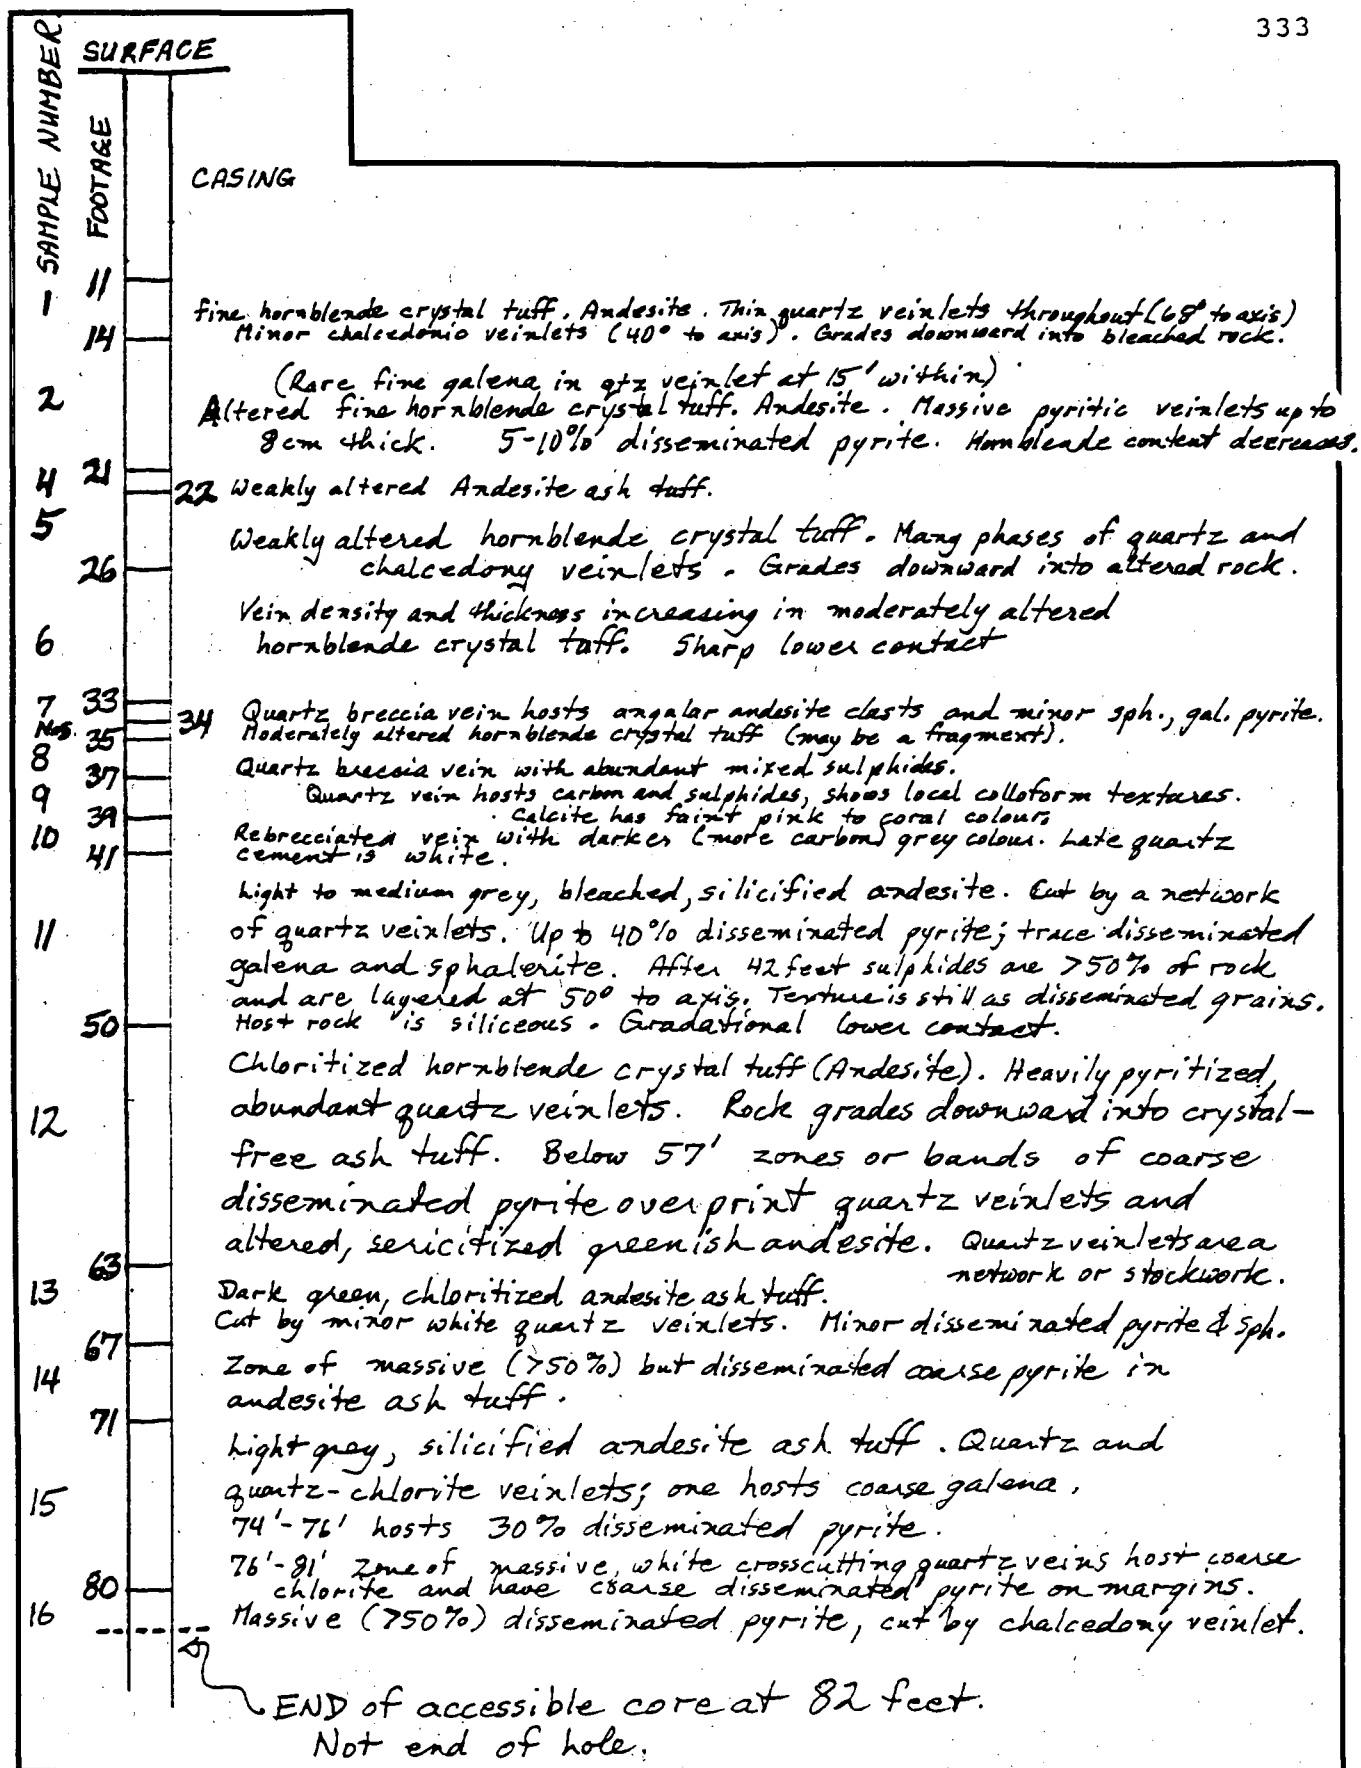 333
SAMPLE NUMBER
SURFACE
FOOTAGE
CASING
11
1
fine hornblende crystal tuff. Andesite. Thin quartz veinlets throughout (68° to axis)
14
Minor chalcedonic veinlets (40° to axis). Grades downward into bleached rock.
(Rare fine galena in qtz veinlet at 15' within)
2
Altered fine hornblende crystal tuff. Andesite. Massive pyritic veinlets up to
8cm thick. 5-10% disseminated pyrite. Hornblende content decreases.
21
4
22 Weakly altered Andesite ash tuff.
5
Weakly altered hornblende crystal tuff. Many phases of quartz and
26
chalcedony veinlets. Grades downward into altered rock.
Vein density and thickness increasing in moderately altered
6
hornblende crystal tuff. Sharp lower contact
7 33
34 Quartz breccia vein hosts angular andesite clasts and minor sph., gal. pyrite.
35 Moderately altered hornblende crystal tuff (may be a fragment).
8
37 Quartz breccia vein with abundant mixed sulphides.
9
Quartz vein hosts carbon and sulphides, shows local colloform textures.
39
Calcite has faint pink to coral colour.
10
Rebrecciated vein with darker (more carbon) grey colour. Late quartz
41
cement is white.
Light to medium grey, bleached, silicified andesite. Cut by a network
11
of quartz veinlets. Up to 40% disseminated pyrite; trace disseminated
galena and sphalerite. After 42 feet sulphides are >50% of rock
and are layered at 50° to axis. Texture is still as disseminated grains.
50
Host rock is siliceous. Gradational lower contact.
Chloritized hornblende crystal tuff (Andesite). Heavily pyritized,
12
abundant quartz veinlets. Rock grades downward into crystal-
free ash tuff. Below 57' zones or bands of coarse
disseminated pyrite overprint quartz veinlets and
altered, sericitized greenish andesite. Quartz veinlets are a
63
network or stockwork.
13
Dark green, chloritized andesite ash tuff.
Cut by minor white quartz veinlets. Minor disseminated pyrite & sph.
67
Zone of massive (>50%) but disseminated coarse pyrite in
14
andesite ash tuff.
71
Light grey, silicified andesite ash tuff. Quartz and
quartz-chlorite veinlets; one hosts coarse galena.
15
74'-76' hosts 30% disseminated pyrite.
76'-81' Zone of massive, white crosscutting quartz veins host coarse
80
chlorite and have coarse disseminated pyrite on margins.
16
Massive (>50%) disseminated pyrite, cut by chalcedony veinlet.
END of accessible core at 82 feet.
Not end of hole.